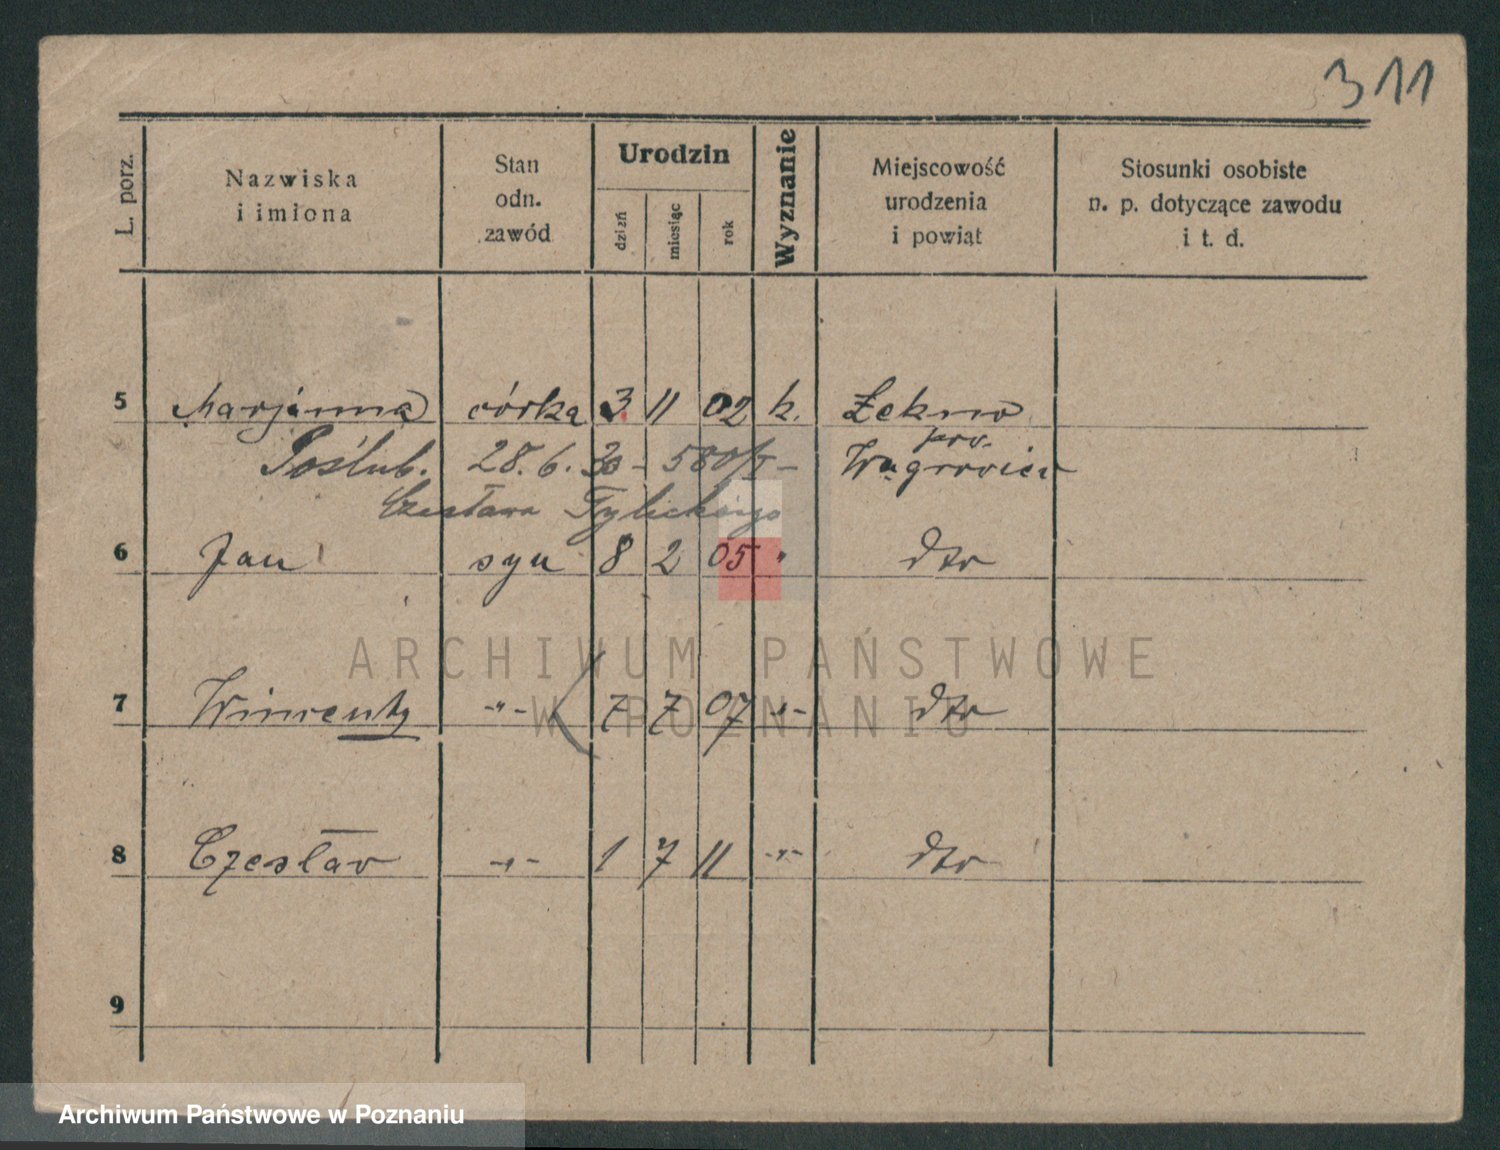 311
L. porz.
Nazwiska i imiona
Stan odn. zawód
Urodzin
dzień
miesiąc
rok
Wyznanie
Miejscowość urodzenia i powiąt
Stosunki osobiste n. p. dotyczące zawodu i t. d.
5 Marjanna córka 3 11 02 k. Łekno
pow.
Poślub. 28. 6. 30 - 580/I - Wągrowiec
Czesława Tylickiego
6 Jan syn 8 2 05 " dto
ARCHIWUM PAŃSTWOWE
W POZNANIU
7 Wincenty -"- 7 7 07 -"- dto
8 Czesław -"- 1 7 11 -"- dto
9
Archiwum Państwowe w Poznaniu